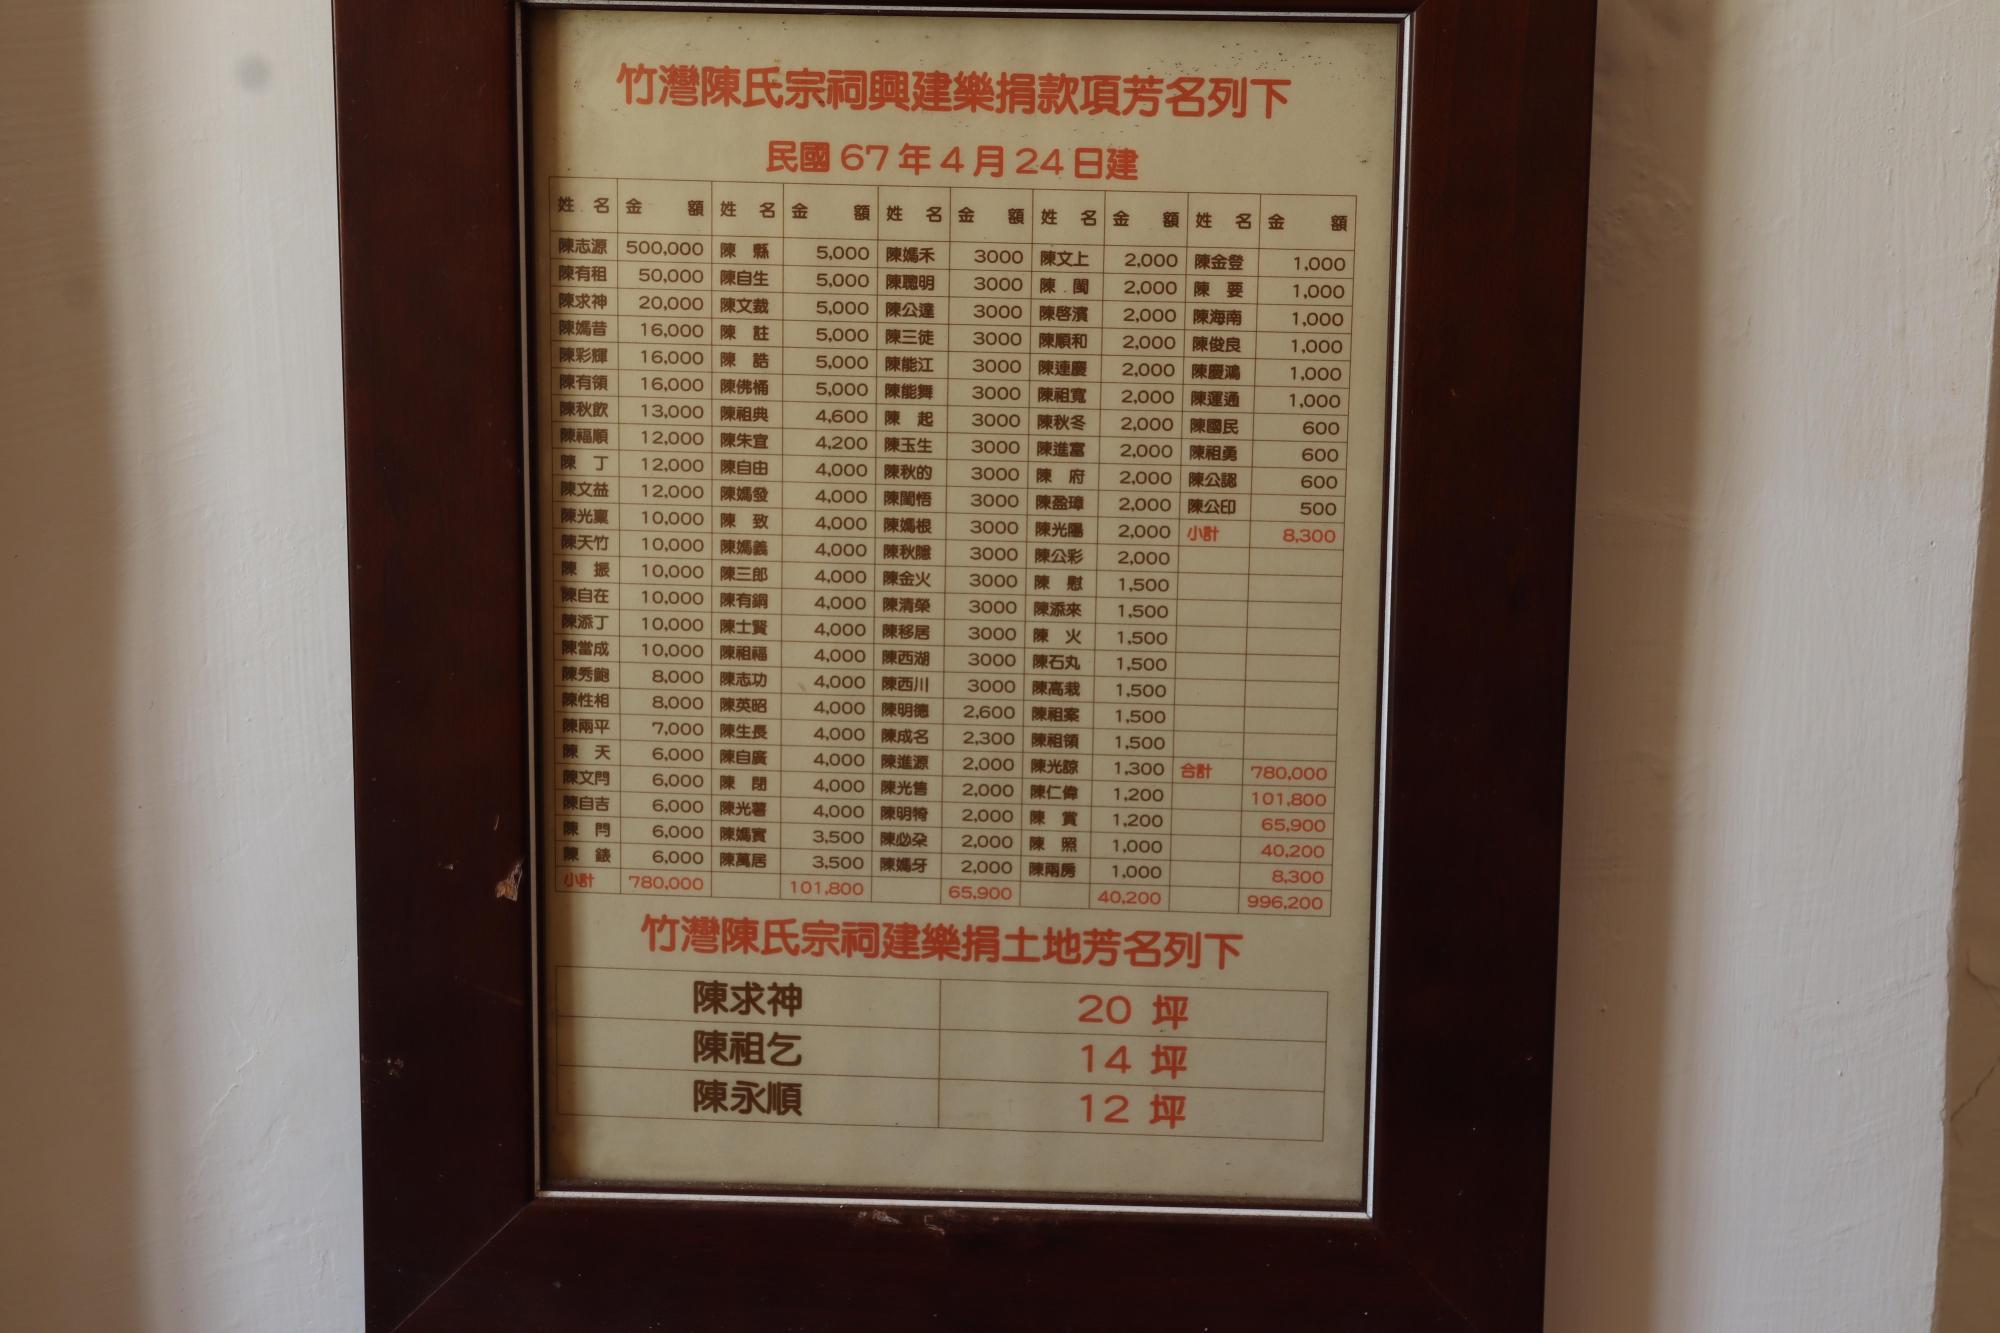 竹灣陳氏宗祠興建樂捐款項芳名列下
民國 67 年 4 月 24 日建
姓 名 金 額 姓 名 金 額 姓 名 金 額 姓 名 金 額 姓 名 金 額
陳志源 500,000 陳 縣 5,000 陳媽禾 3000 陳文上 2,000 陳金登 1,000
陳有租 50,000 陳自生 5,000 陳聰明 3000 陳 閩 2,000 陳 要 1,000
陳求神 20,000 陳文裁 5,000 陳公達 3000 陳啓濱 2,000 陳海南 1,000
陳媽昔 16,000 陳 註 5,000 陳三徒 3000 陳順和 2,000 陳俊良 1,000
陳彩輝 16,000 陳 誥 5,000 陳能江 3000 陳連慶 2,000 陳慶鴻 1,000
陳有領 16,000 陳佛桶 5,000 陳能舞 3000 陳祖寬 2,000 陳運通 1,000
陳秋飲 13,000 陳祖典 4,600 陳 起 3000 陳秋冬 2,000 陳國民 600
陳福順 12,000 陳朱宜 4,200 陳玉生 3000 陳進富 2,000 陳祖勇 600
陳 丁 12,000 陳自由 4,000 陳秋的 3000 陳 府 2,000 陳公認 600
陳文益 12,000 陳媽發 4,000 陳閨悟 3000 陳盈璋 2,000 陳公印 500
陳光稟 10,000 陳 致 4,000 陳媽根 3000 陳光陽 2,000 小計 8,300
陳天竹 10,000 陳媽義 4,000 陳秋隱 3000 陳公彩 2,000
陳 振 10,000 陳三郎 4,000 陳金火 3000 陳 慰 1,500
陳自在 10,000 陳有鋼 4,000 陳清榮 3000 陳添來 1,500
陳添丁 10,000 陳士賢 4,000 陳移居 3000 陳 火 1,500
陳當成 10,000 陳祖福 4,000 陳西湖 3000 陳石丸 1,500
陳秀鮑 8,000 陳志功 4,000 陳西川 3000 陳高栽 1,500
陳性相 8,000 陳英昭 4,000 陳明德 2,600 陳祖案 1,500
陳兩平 7,000 陳生長 4,000 陳成名 2,300 陳祖領 1,500
陳 天 6,000 陳自廣 4,000 陳進源 2,000 陳光諒 1,300 合計 780,000
陳文閂 6,000 陳 閉 4,000 陳光售 2,000 陳仁偉 1,200 101,800
陳自吉 6,000 陳光薯 4,000 陳明犄 2,000 陳 賞 1,200 65,900
陳 閂 6,000 陳媽實 3,500 陳必朶 2,000 陳 照 1,000 40,200
陳 錶 6,000 陳萬居 3,500 陳媽牙 2,000 陳兩房 1,000 8,300
小計 780,000 101,800 65,900 40,200 996,200
竹灣陳氏宗祠建樂捐土地芳名列下
陳求神 20 坪
陳祖乞 14 坪
陳永順 12 坪